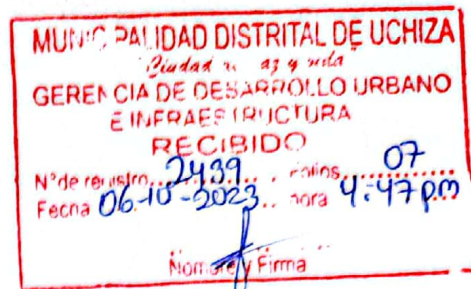 MUNICIPALIDAD DISTRITAL DE UCHIZA
Ciudad de Paz y Vida
GERENCIA DE DESARROLLO URBANO
E INFRAESTRUCTURA
RECIBIDO
N° de registro 2439 Folios 07
Fecha 06-10-2023 hora 4:47 pm
Nombre y Firma